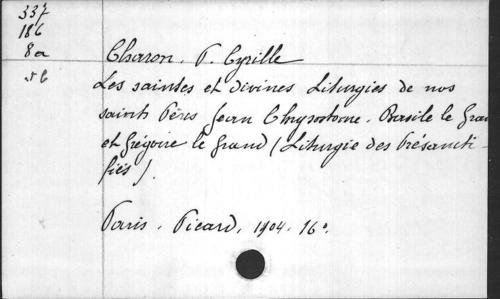 337
186
8a
Charon. P. Cyrille
Les saintes et divines Liturgies de nos
saints Pères Jean Chrysostome. Basile le Gran
et Grégoire le Grand (Liturgie des Présancti-
fiés).
Paris. Picard, 1904. 16°.